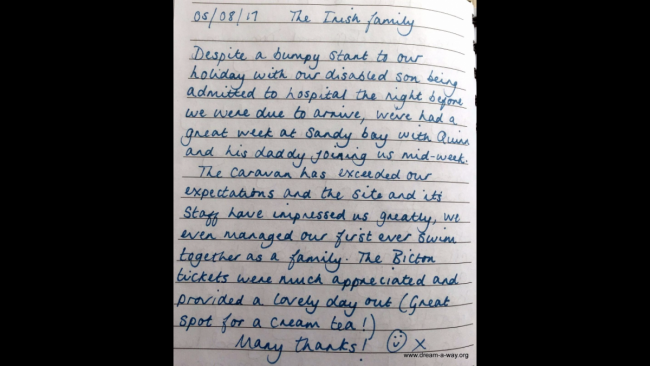 05/08/17 The Irish family
Despite a bumpy start to our
holiday with our disabled son being
admitted to hospital the night before
we were due to arrive, we've had a
great week at Sandy bay with Quinn
and his daddy joining us mid-week.
The caravan has exceeded our
expectations and the site and its
staff have impressed us greatly, we
even managed our first ever swim
together as a family. The Bicton
tickets were much appreciated and
provided a lovely day out (Great
spot for a cream tea!)
Many thanks! ☺ x
www.dream-a-way.org